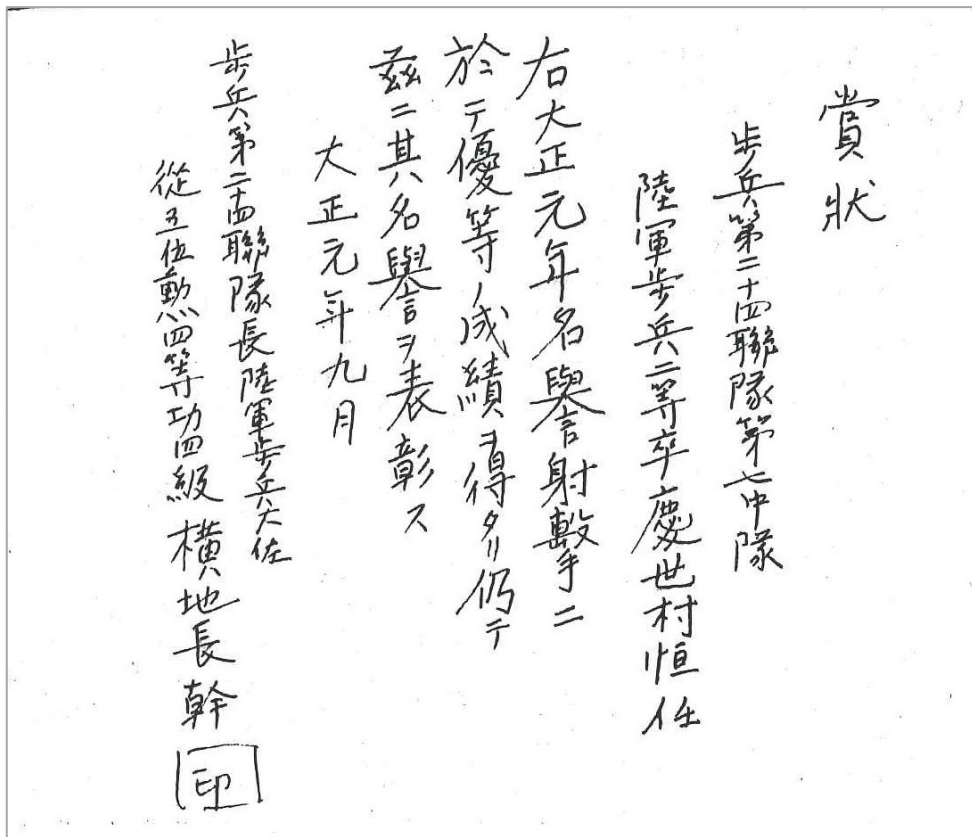 賞状
歩兵第二十四聯隊第七中隊
陸軍歩兵二等卒慶世村恒任
右大正元年名譽射撃ニ
於テ優等ノ成績ヲ得タリ仍テ
茲ニ其名譽ヲ表彰ス
大正元年九月
歩兵第二十四聯隊長陸軍歩兵大佐
從五位勲四等功四級 横地長幹 印